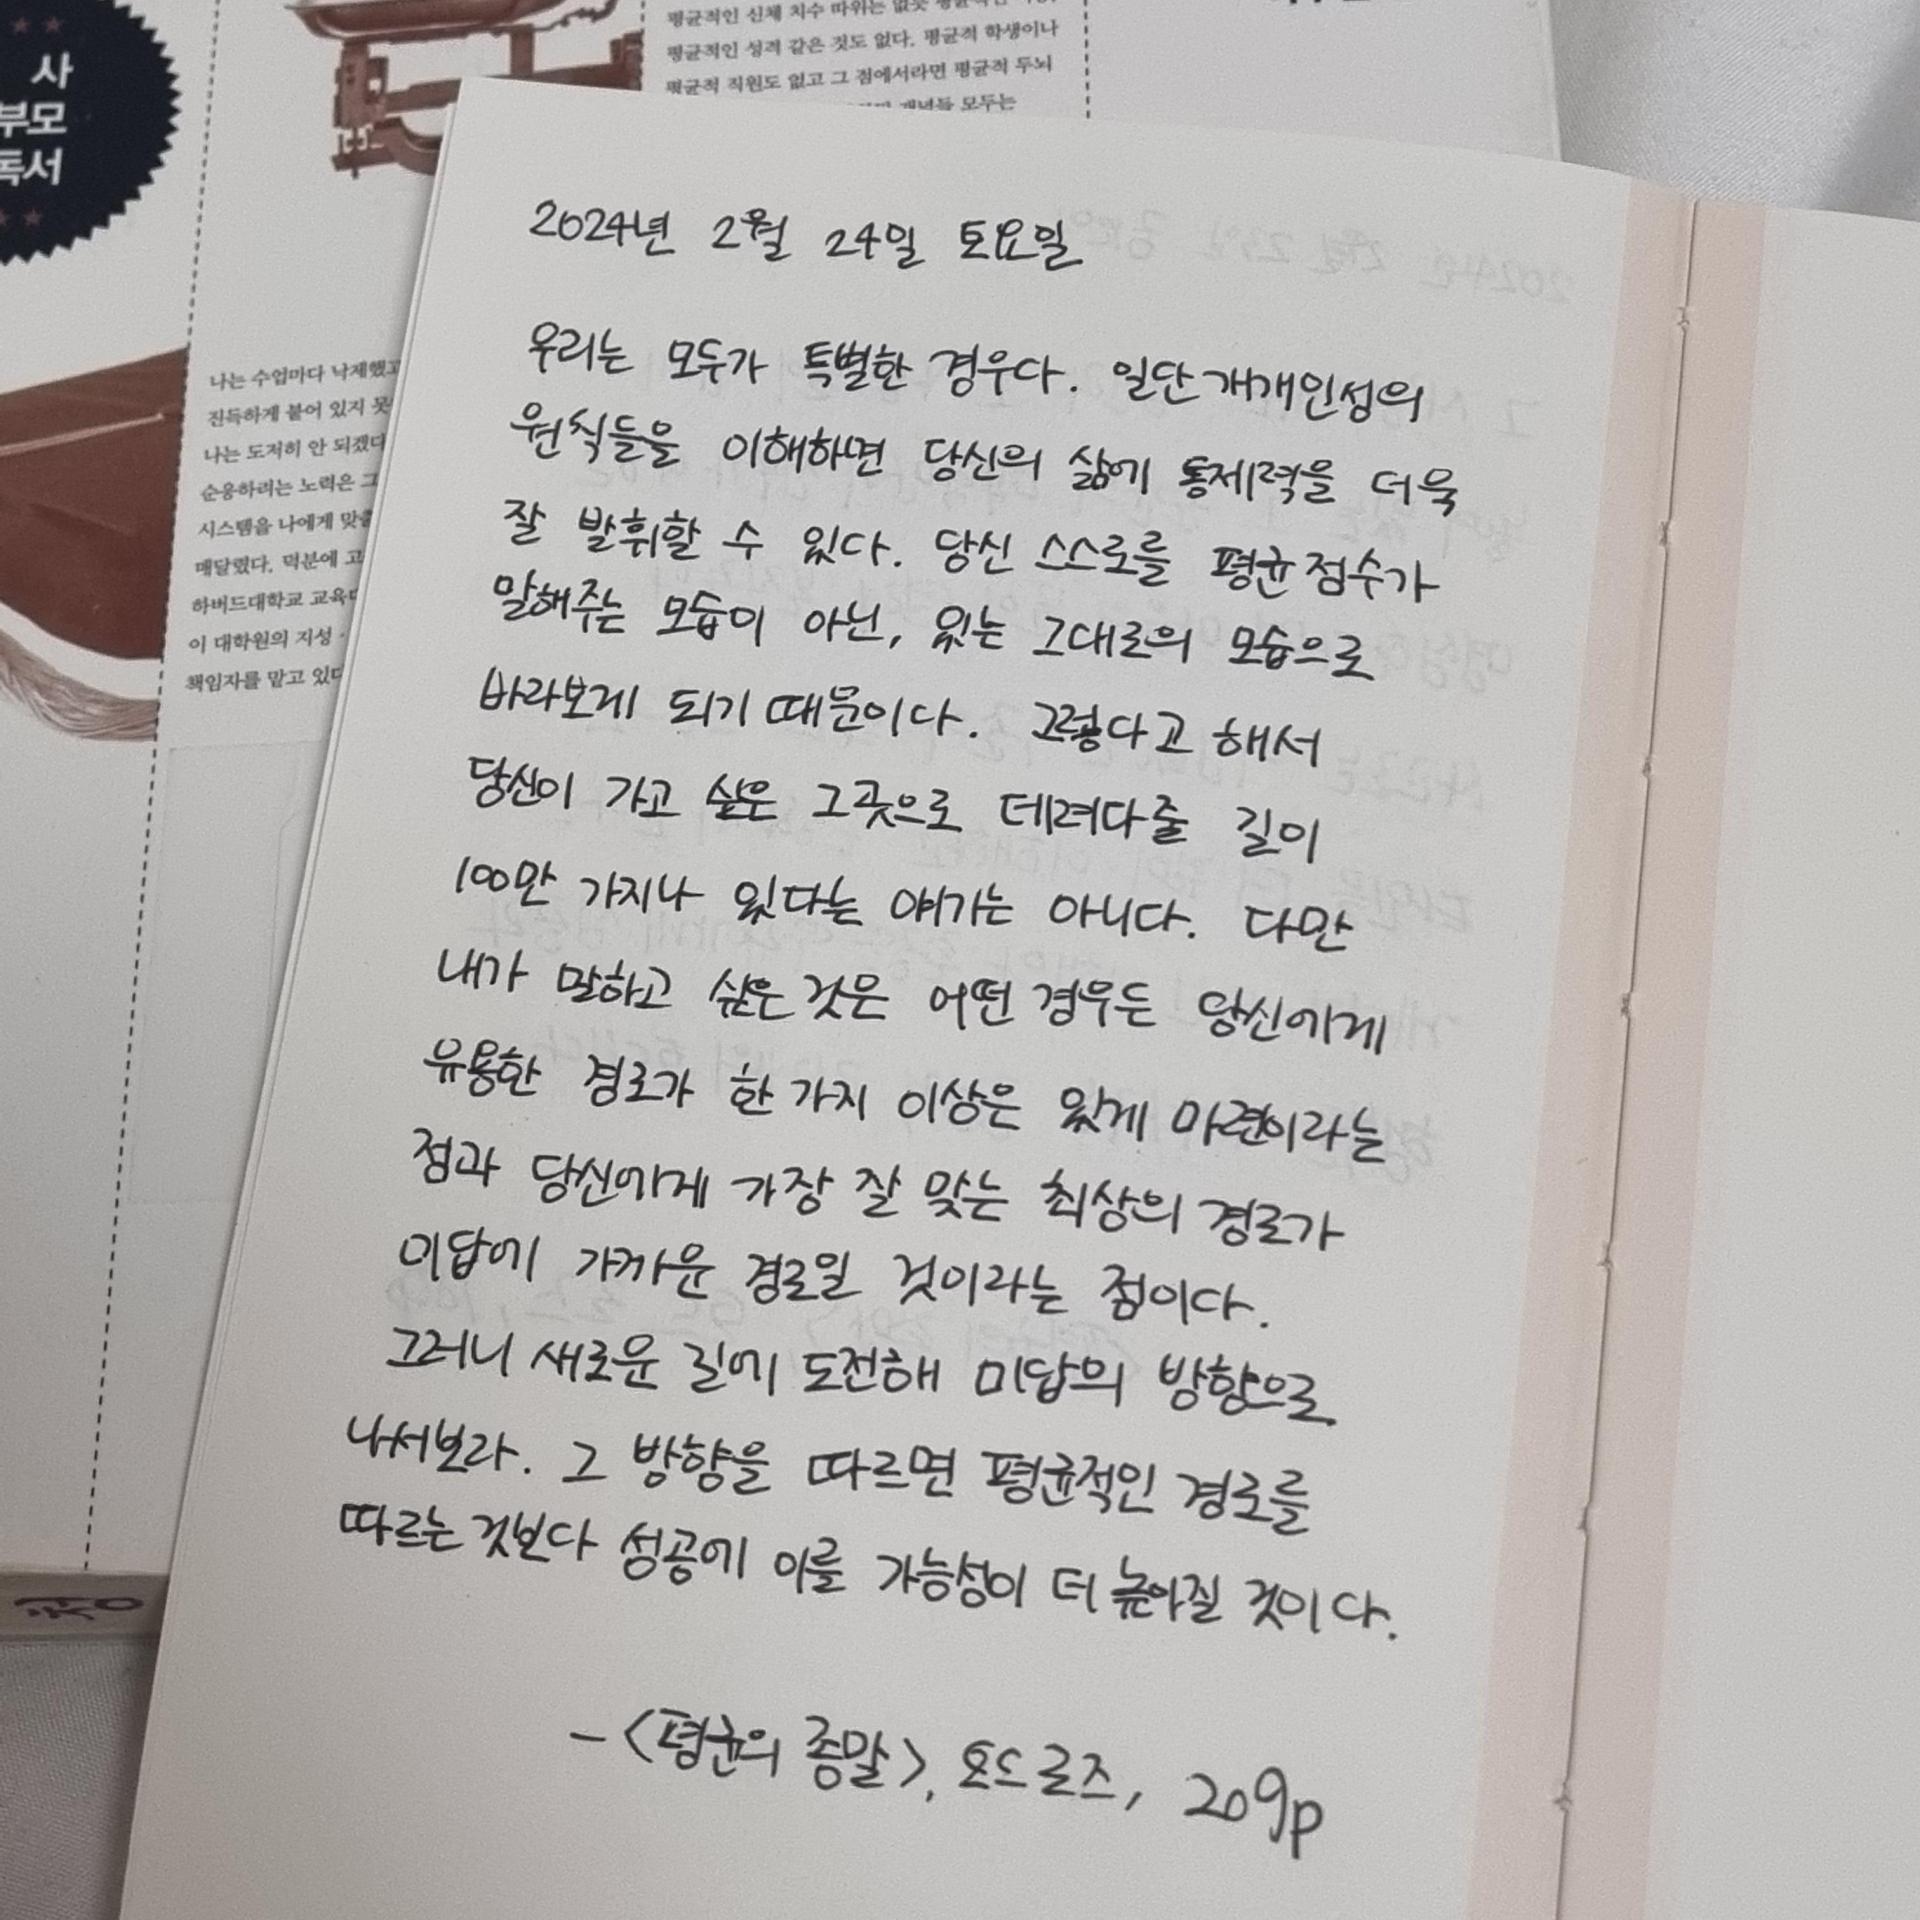 사
부모
독서
평균적인 성격 같은 것도 없다. 평균적 학생이나
평균적 직원도 없고 그 점에서라면 평균적 두뇌
나는 수업마다 낙제했고
진득하게 붙어 있지 못
나는 도저히 안 되겠다
순응하려는 노력은 그
시스템을 나에게 맞출
매달렸다. 덕분에 고
하버드대학교 교육대
이 대학원의 지성
책임자를 맡고 있다
2024년 2월 24일 토요일
우리는 모두가 특별한 경우다. 일단 개개인성의
원칙들을 이해하면 당신의 삶에 통제력을 더욱
잘 발휘할 수 있다. 당신 스스로를 평균점수가
말해주는 모습이 아닌, 있는 그대로의 모습으로
바라보게 되기 때문이다. 그렇다고 해서
당신이 가고 싶은 그곳으로 데려다줄 길이
100만 가지나 있다는 얘기는 아니다. 다만
내가 말하고 싶은 것은 어떤 경우든 당신에게
유용한 경로가 한 가지 이상은 있게 마련이라는
점과 당신에게 가장 잘 맞는 최상의 경로가
미답에 가까운 경로일 것이라는 점이다.
그러니 새로운 길에 도전해 미답의 방향으로
나서보라. 그 방향을 따르면 평균적인 경로를
따르는 것보다 성공에 이를 가능성이 더 높아질 것이다.
- <평균의 종말>, 토드 로즈, 209p